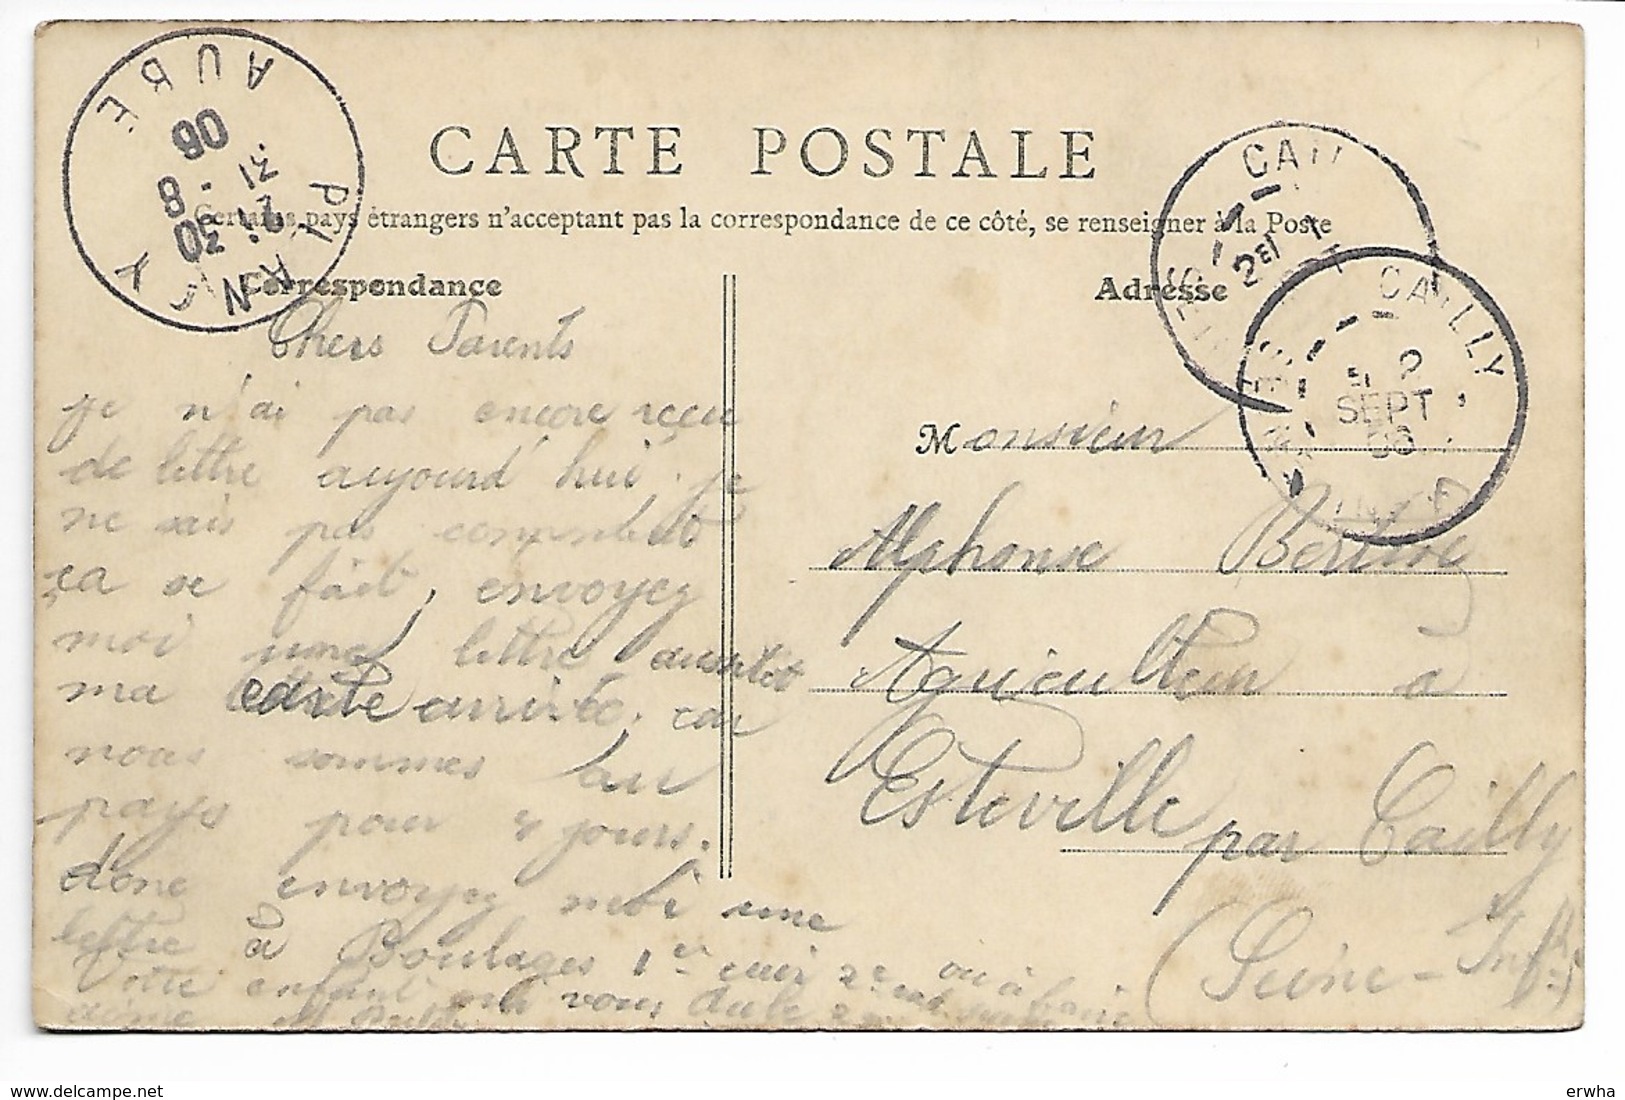 CARTE POSTALE
Certains pays étrangers n'acceptent pas la correspondance de ce côté, se renseigner à la Poste
Correspondance
Chers Parents
je n'ai pas encore reçu
de lettre aujourd'hui, je
ne sais pas comment
ça se fait, envoyez
moi une lettre aussitôt
ma carte arrivée, car
nous sommes au
pays pour 4 jours.
donc envoyez moi une
lettre à Boulages 1er
Votre enfant qui vous
aime
Adresse
Monsieur
Alphonse
Agriculteur à
Esteville par Cailly
(Seine-Infre)
PLANCY
AUBE
21 30
31 - 8
06
CAILLY
2E
SEPT
CAILLY
2
SEPT
06
SEINE INFRE
delcampe.net
erwha